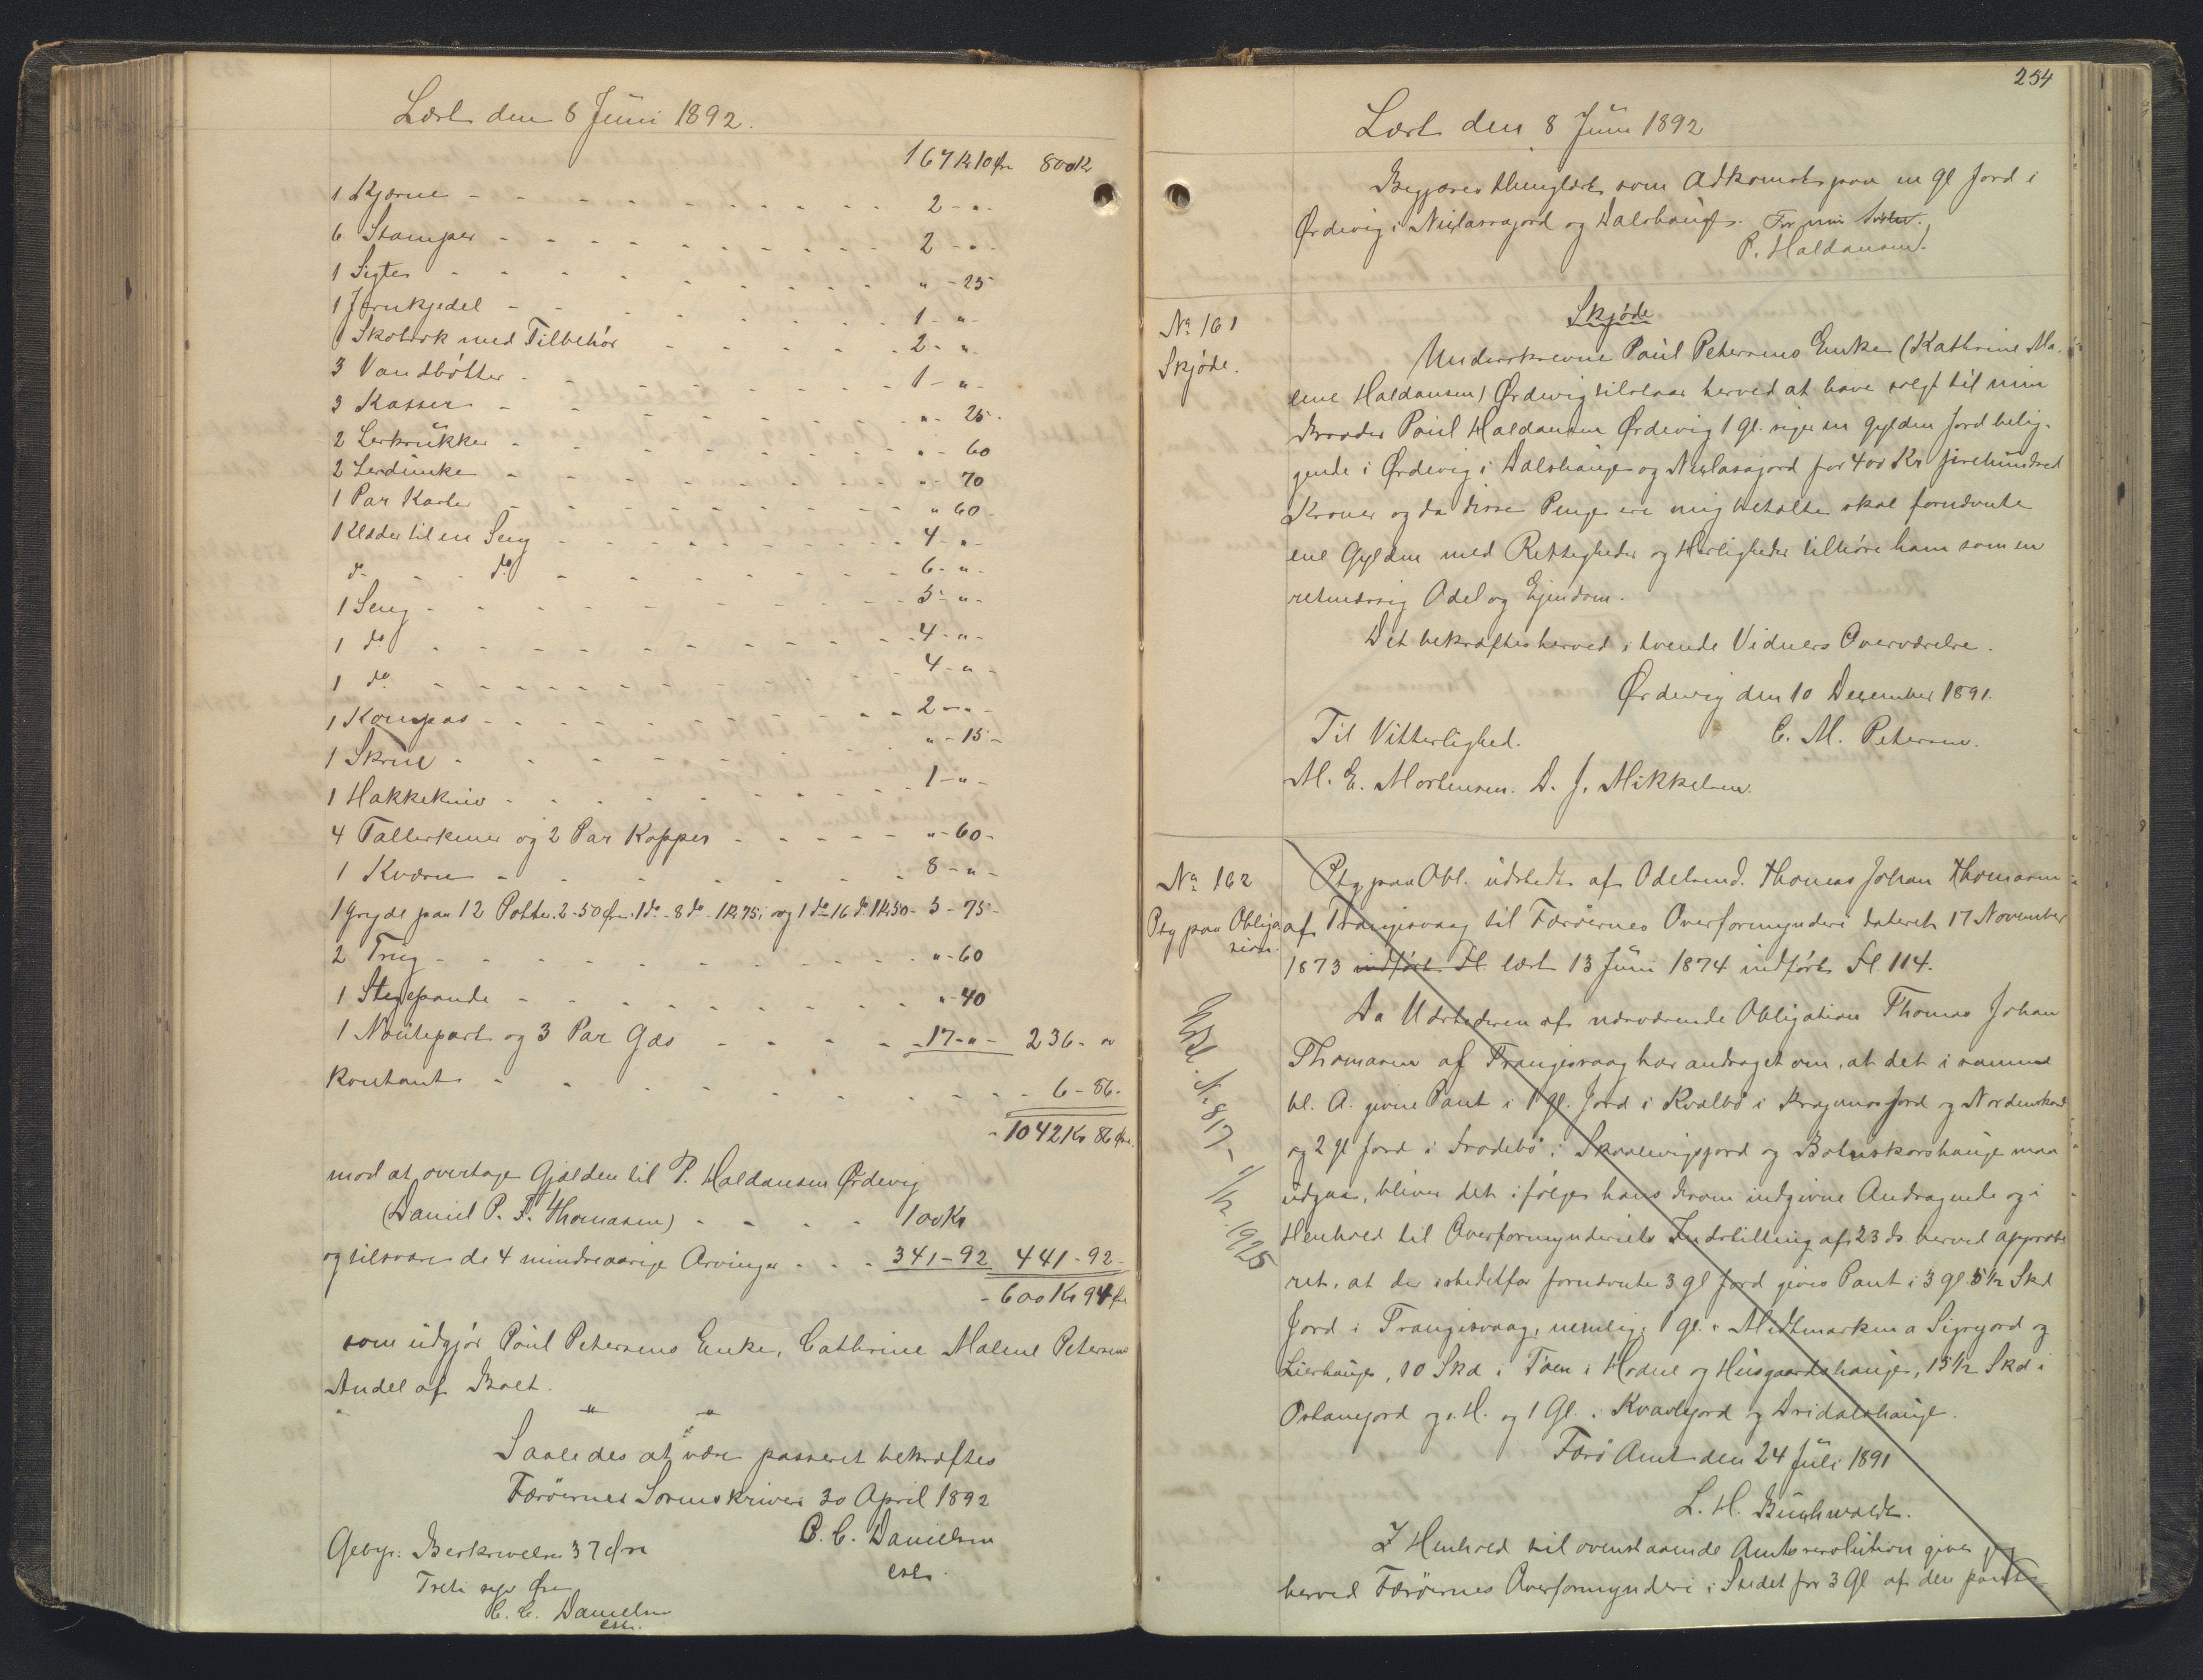 Læst den 8 Juni 1892.
167 Kr 10 Øre 800 Kr
1 Kjærne - - - 2 - " -
6 Stamper - - - 2 - " -
1 Sigte - - - " - 25
1 Jernkjedel - - - 1 - " -
1 Skotøisk med Tilbehør - - - 2 - " -
3 Vandbøtter - - - 1 - " -
3 Kasser - - - " - 25 -
2 Lerkrukker - - - " - 60
2 Lerdunke - - - " - 70
1 Par Karter - - - " 60 -
1 Klæder til en Seng - - - 4 - " -
do - - do - - - 6 - " -
1 Seng - - - 5 - " -
1 do - - - 4 - " -
1 do - - - 4 - " -
1 Kompas - - - 2 - " -
1 Skrue - - - " - 15 -
1 Hakkekniv - - - 1 - " -
4 Tallerkener og 2 Par Kopper - - - " - 60 -
1 Kværn - - - 8 - " -
1 Gryde paa 12 Potter 2-50 Øre, 1 do - 8 do - 1 Kr 75; og 1 do 16 do 1 Kr 50 - 5 - 75 -
2 Trug - - - " - 60
1 Stegepande - - - " - 40
1 Noutepart og 3 Par Gæs - - - 17 - " - 236 - "
Kontant - - - 6 - 86 -
- 1042 Kr 86 Øre
mod at overtage Gjælden til P. Haldansen Ørdevig
(Daniel P. F. Thomasen) - - - 100 Kr
og tilsvare de 4 mindreaarige Arvinger - - - 341 - 92 441 - 92 -
- 600 Kr 94 Øre
som udgjør Poul Petersens Enke, Cathrine Malene Petersens
Andel af Boet.
" "
Saaledes at være passeret bekræftes
Færøernes Sorenskriveri 30 April 1892
C. C. Danielsen
cst.
Gebyr: Beskrivelse 37 Øre
Treti syv Øre
C. C. Danielsen
cst.
254
Læst den 8 Juni 1892
Begjæres thinglæst som Adkomst paa en Gl Jord i
Ørdevig i Niclasajord og Dalshauge. For min Søster.
P. Haldansen.
No 161
Skjøde.
Skjøde
Underskrevne Poul Petersens Enke (Kathrine Ma-
lene Haldansen) Ørdevig tilstaar herved at have solgt til min
Broder Poul Haldansen Ørdevig 1 Gl. siger en Gylden Jord belig-
gende i Ørdevig i Dalshauge og Niclasajord for 400 Kr firehundred
Kroner og da disse Penge ere mig betalte skal fornævnte
ene Gylden med Rettigheder og Herligheder tilhøre ham som en
retmæssig Odel og Ejendom.
Det bekræftes herved i tvende Vidners Overværelse.
Ørdevig den 10 Dezember 1891.
Til Vitterlighed. C. M. Petersen.
M. E. Mortensen. D. J. Mikkelsen.
No 162
Ptg paa Obliga-
sion.
Ptg paa Obl. udstedt af Odelsmd. Thomas Johan Thomasen
af Trangisvaag til Færöernes Overformynderi dateret 17 November
1873 indført Fl. læst 13 Juni 1874 indført Fl 114.
Da Udstederen af nærværende Obligation Thomas Johan
Thomasen af Trangisvaag har andraget om, at det i samme
bl. A. givne Pant i 1 Gl. Jord i Kvalbö i Bragenasjord og Nordenskov
og 2 gl Jord i Frodebö i Skaalevigsjord og Botnskorshauge maa
udgaa, bliver det ifølge hans derom indgivne Andragende og i
Henhold til Overformynderiets Indstilling af 23 ds. herved approbe-
ret, at der istedetfor fornævnte 3 gl Jord gives Pant i 3 gl. 5½ Skd
Jord i Trangisvaag, nemlig 1 gl. i Midtmarken a Sigrjord og
Lierhauge, 10 Skd i Töen i Hodne og Husgaardshauge, 15½ Skd i
Ostanejord og i H. og 1 Gl. i Kvavlejord og Dridalshauge.
Færö Amt den 24 Juli 1891
L. H. Buchwaldt.
I Henhold til ovenstaaende Amtsresolution giver jeg
herved Færöernes Overformynderi i Stedet for 3 Gl af den pant-
Udsl. No 817 - 1/12. 1925